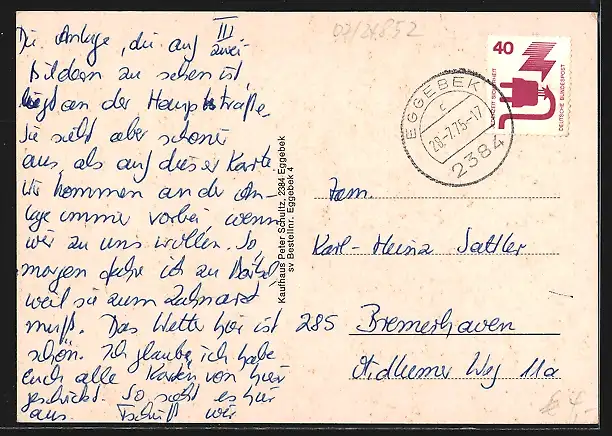 III
Die Anlage, die auf zwei
Bildern zu sehen ist,
liegt an der Hauptstraße.
Sie sieht aber schöner
aus, als auf dieser Karte
Wir kommen an der An-
lage immer vorbei, wenn
wir zu uns wollen. So,
morgen fahre ich zu
weil sie zum Zahnarzt
muß. Das Wetter hier ist
schön. Ich glaube, ich habe
euch alle Karten von hier
geschickt. So sieht es hier
aus. Tschüß wir
Kaufhaus Peter Schultz, 2384 Eggebek
sv Bestellnr. Eggebek 4
07/24852
40
DEUTSCHE BUNDESPOST
EGGEBEK
c
28.-7.75-17
2384
Fam.
Karl-Heinz Sattler
285 Bremerhaven
Weg 11a
€ 4,-